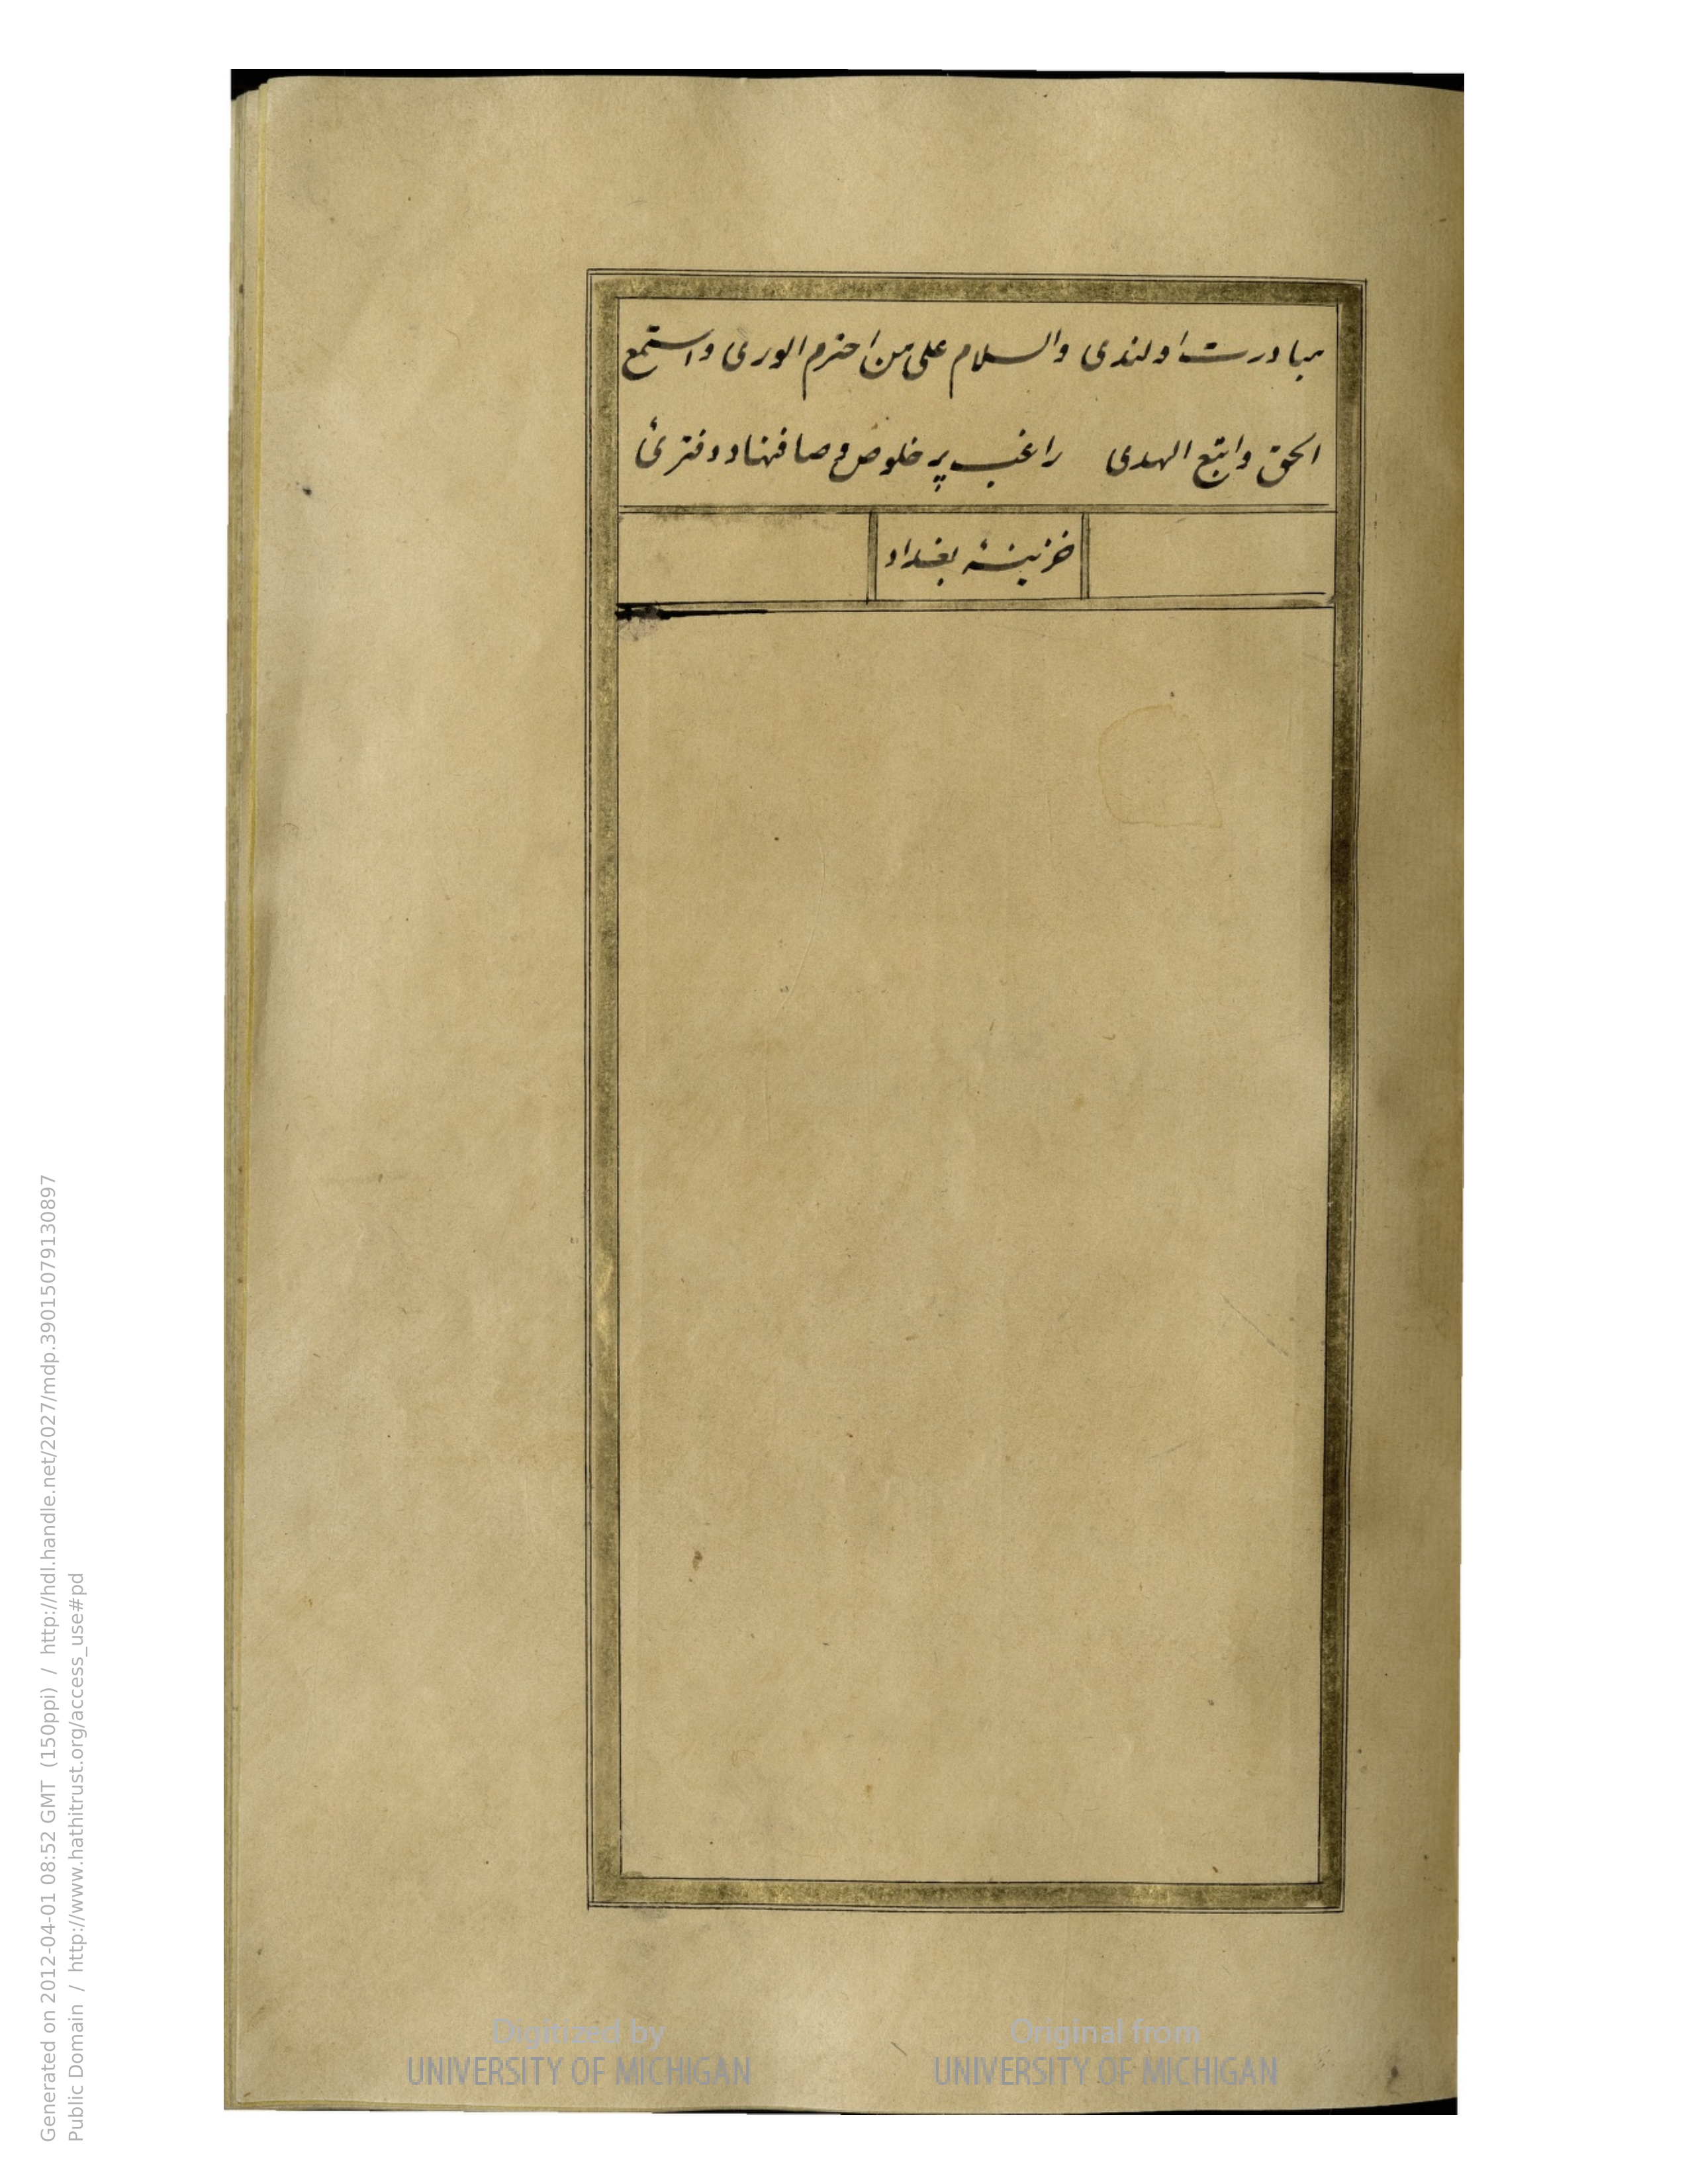 مبادرت اولندی والسلام علی من احترم الوری واستمع
الحق واتبع الهدی راغب پر خلوص و صافنهاد دفتریٔ
خزینهٔ بغداد
Generated on 2012-04-01 08:52 GMT (150ppi) / http://hdl.handle.net/2027/mdp.39015079130897
Public Domain / http://www.hathitrust.org/access_use#pd
Digitized by
UNIVERSITY OF MICHIGAN
Original from
UNIVERSITY OF MICHIGAN